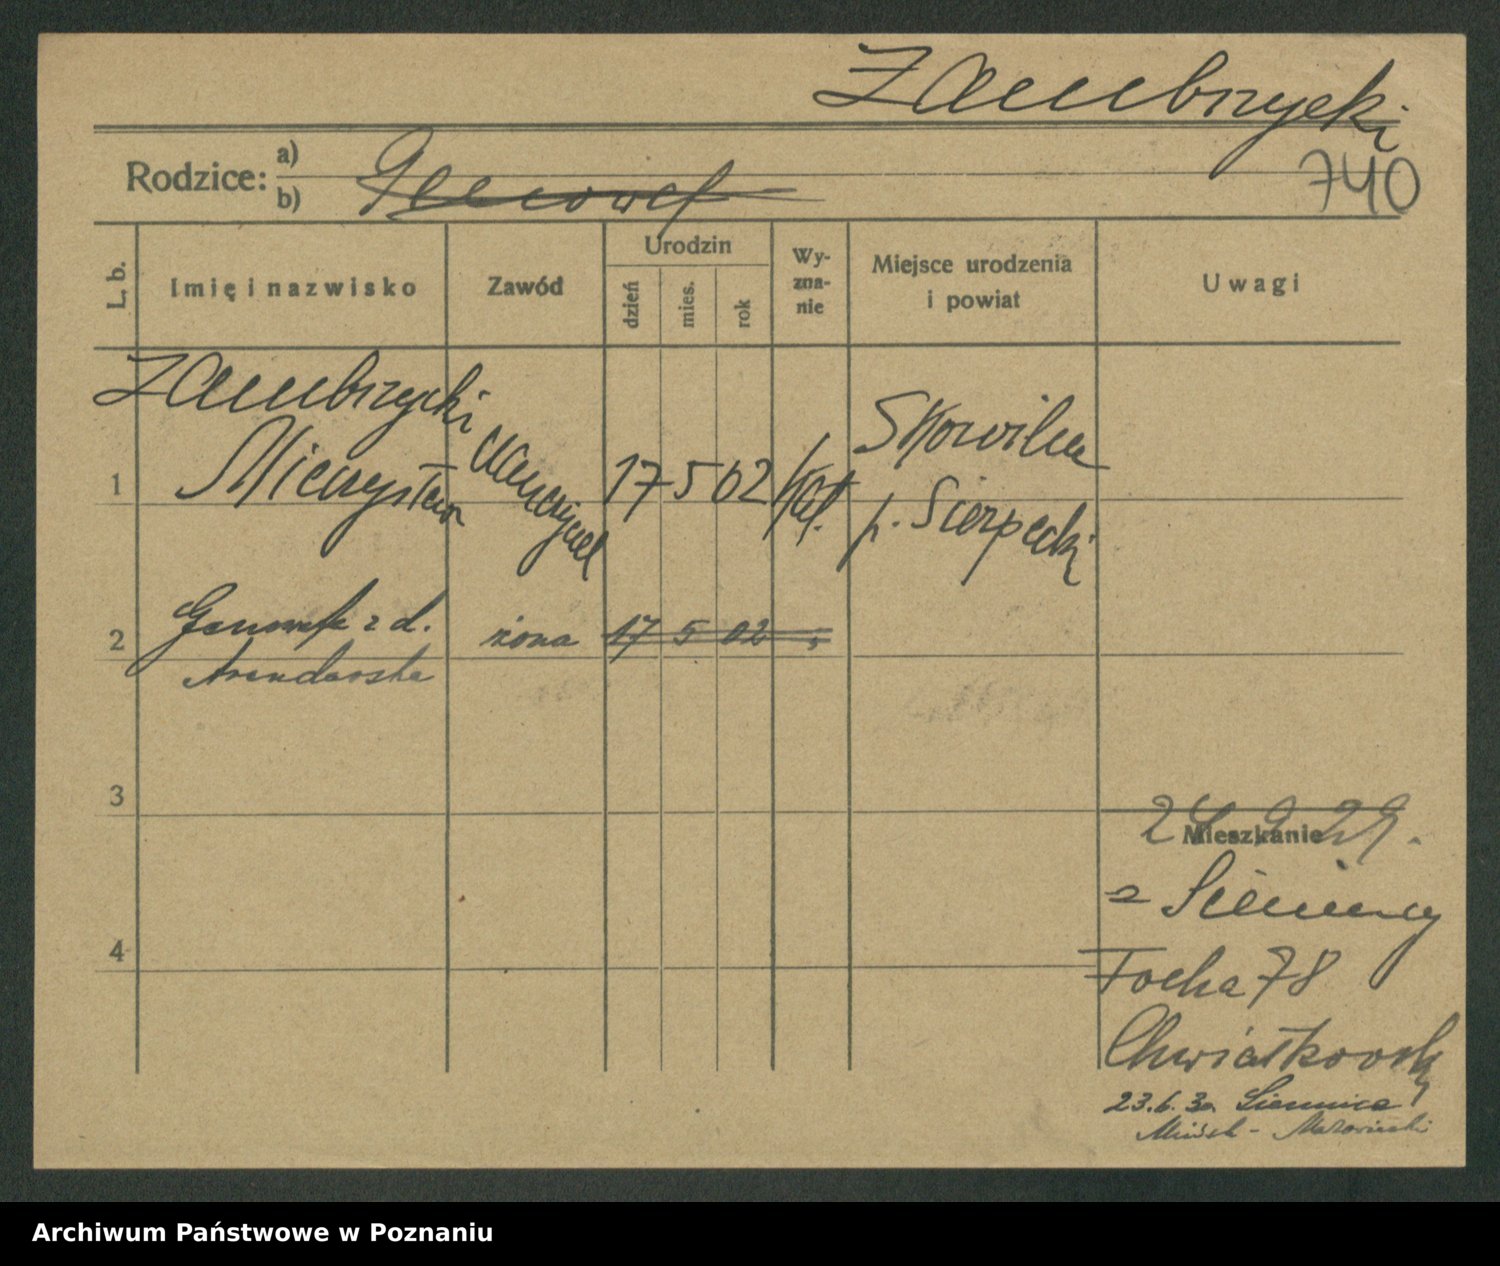 Zambrzycki
740
Rodzice: a)
b)
L. b.
Imię i nazwisko
Zawód
Urodzin
dzień
mies.
rok
Wy-
zna-
nie
Miejsce urodzenia
i powiat
Uwagi
1
Zambrzycki
Mieczysław
nauczyciel
17 5 02
kat.
Skowilna
p. Sierpecki
2
Genowefa z d.
Arendarska
żona
17 5 02 "
3
4
Mieszkanie
24 9 29.
z Siennicy
Focha 78
Chwiatkowski
23.6.30 Siennica
Mińsk-Mazowiecki
Archiwum Państwowe w Poznaniu